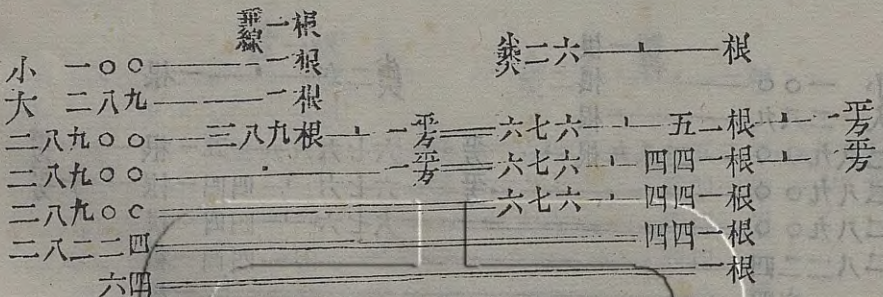 垂線一根
二六⊥一根
小 一〇〇——一根
大 二八九——一根
二八九〇〇——三八九根⊥一平方══六七六⊥五一根⊥一平方
二八九〇〇⊥一平方══六七六⊥四四一根⊥一平方
二八九〇〇══六七六⊥四四一根
二八二二四══四四一根
六四══一根